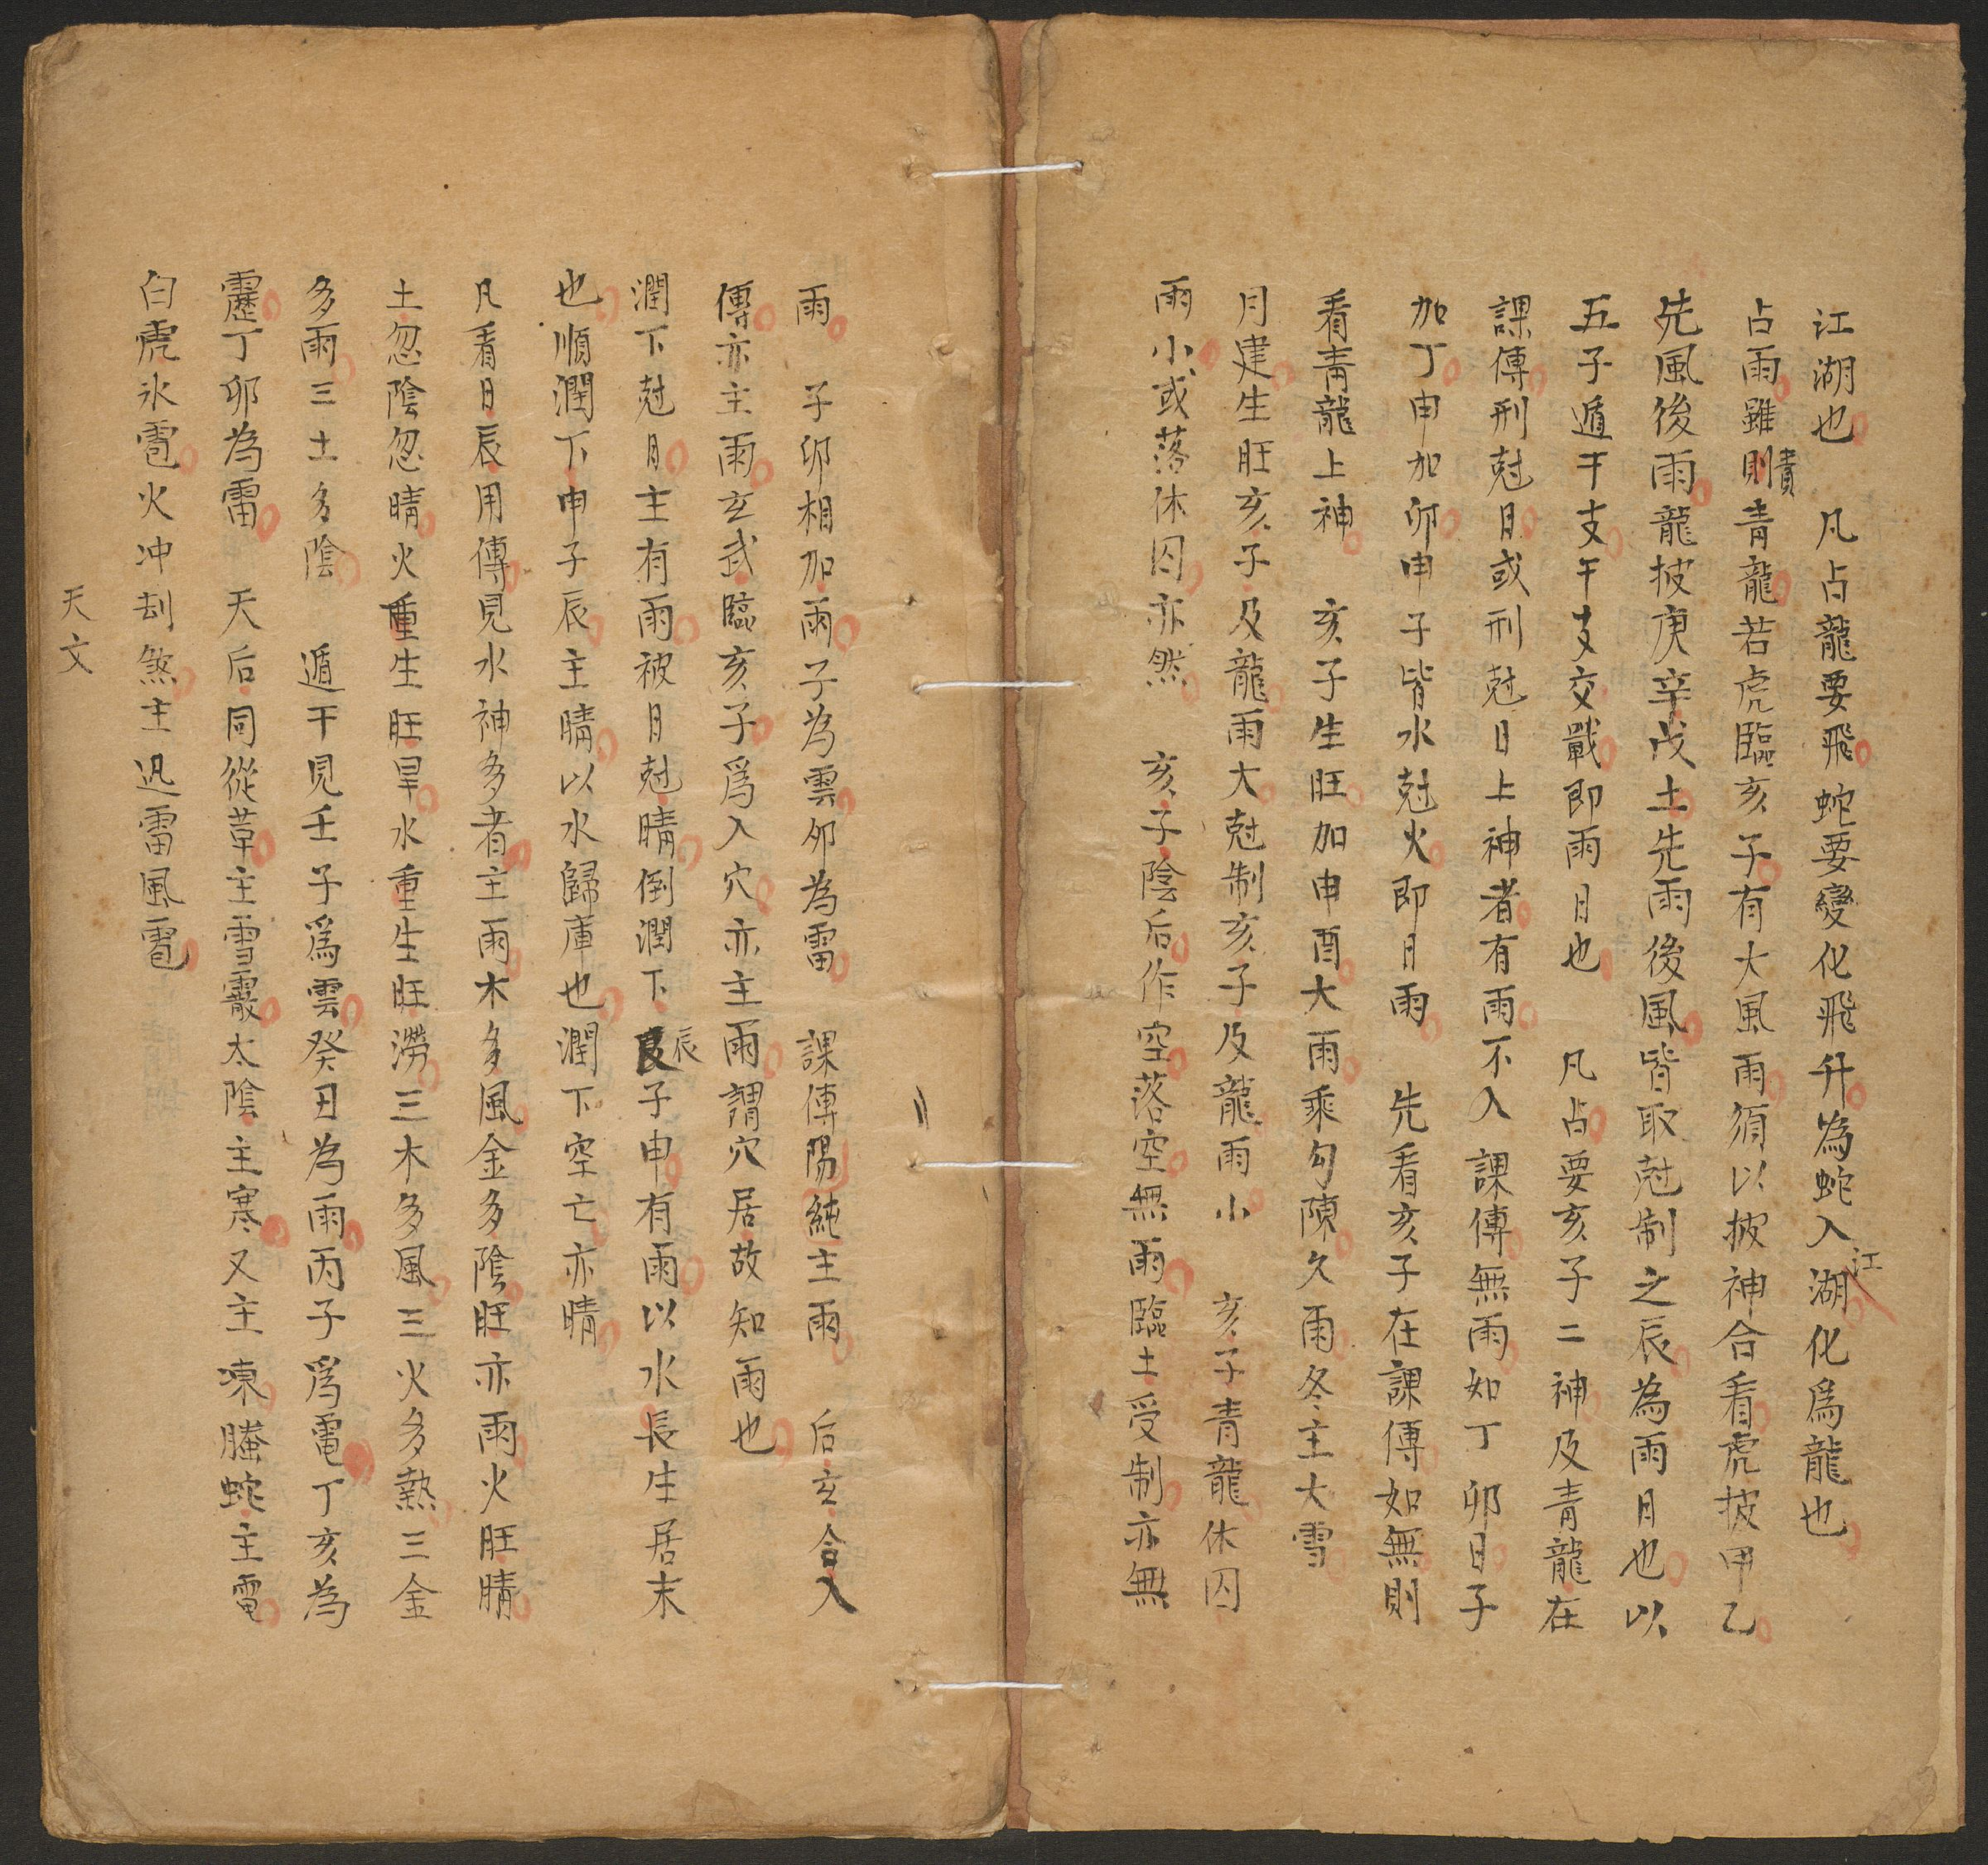 江湖也　凡占龍要飛蛇要變化飛升為蛇入江湖化爲龍也
占雨雖則責青龍若虎臨亥子有大風雨須以披神合看虎披甲乙
先風後雨龍披庚辛戊土先雨後風皆取尅制之辰為雨日也以
五子遁干支干支交戰即雨日也　凡占要亥子二神及青龍在
課傳刑尅日或刑尅日上神者有雨不入課傳無雨如丁卯日子
加丁申加卯申子皆水尅火即日雨　先看亥子在課傳如無則
看青龍上神　亥子生旺加申酉大雨乘勾陳久雨冬主大雪
月建生旺亥子及龍雨大尅制亥子及龍雨小　亥子青龍休囚
雨小或落休囚亦然　亥子陰后作空落空無雨臨土受制亦無
雨　子卯相加雨子為雲卯為雷　課傳陽純主雨　后玄合入
傳亦主雨玄武臨亥子爲入穴亦主雨謂穴居故知雨也
潤下尅日主有雨被日尅晴倒潤下辰子申有雨以水長生居末
也順潤下申子辰主晴以水歸庫也潤下空亡亦晴
凡看日辰用傳見水神多者主雨木多風金多陰旺亦雨火旺晴
土忽陰忽晴火重生旺旱水重生旺澇三木多風三火多熱三金
多雨三土多陰　遁干見壬子爲雲癸丑為雨丙子爲電丁亥為
靂丁卯為雷　天后同從革主雪霰太陰主寒又主凍螣蛇主電
白虎氷雹火冲刦煞主迅雷風雹
天文